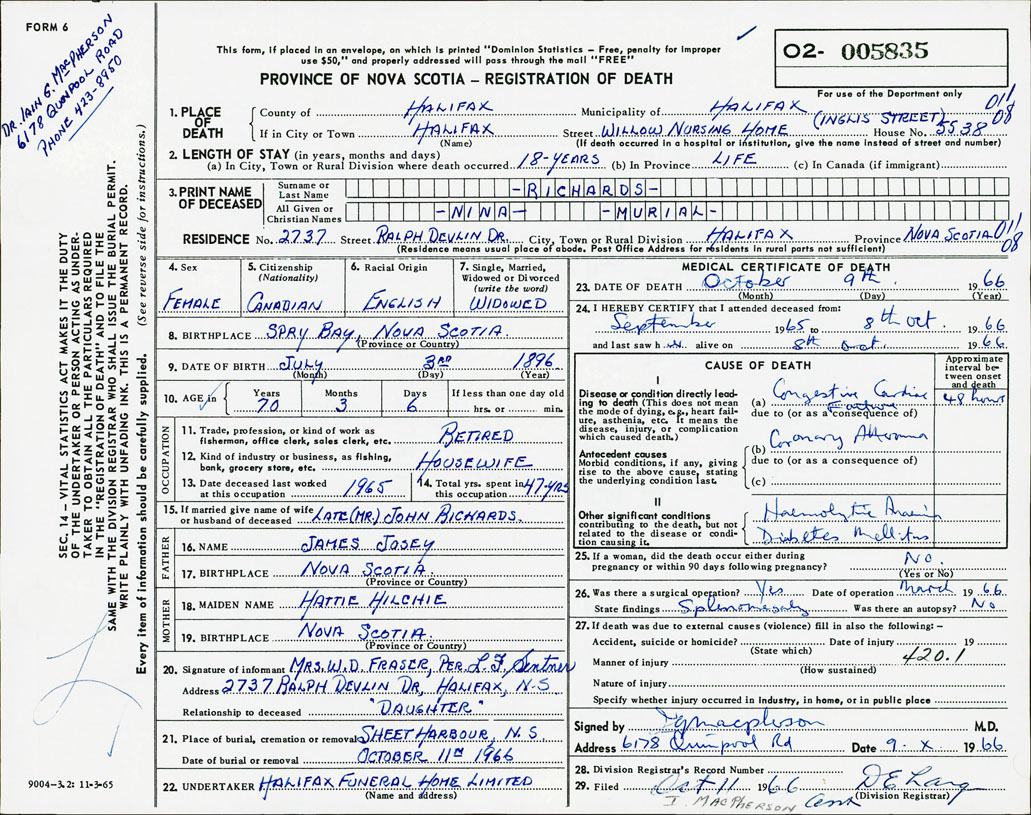 FORM 6
DR. IAIN G. MACPHERSON
6178 QUINPOOL ROAD
PHONE 423-8950
This form, if placed in an envelope, on which is printed "Dominion Statistics – Free, penalty for improper
use $50," and properly addressed will pass through the mail "FREE"
PROVINCE OF NOVA SCOTIA – REGISTRATION OF DEATH
02- 005835
For use of the Department only
011
08
1. PLACE OF DEATH County of HALIFAX Municipality of HALIFAX
(INGLIS STREET)
If in City or Town HALIFAX Street WILLOW NURSING HOME House No. 5538
(Name) (If death occurred in a hospital or institution, give the name instead of street and number)
2. LENGTH OF STAY (in years, months and days)
(a) In City, Town or Rural Division where death occurred 18-YEARS (b) In Province LIFE (c) In Canada (if immigrant)
3. PRINT NAME OF DECEASED Surname or Last Name -RICHARDS-
All Given or Christian Names -NINA- -MURIAL-
RESIDENCE No. 2737 Street RALPH DEVLIN DR. City, Town or Rural Division HALIFAX Province NOVA SCOTIA 011
08
(Residence means usual place of abode. Post Office Address for residents in rural parts not sufficient)
4. Sex
FEMALE
5. Citizenship
(Nationality)
CANADIAN
6. Racial Origin
ENGLISH
7. Single, Married,
Widowed or Divorced
(write the word)
WIDOWED
8. BIRTHPLACE SPRY BAY, NOVA SCOTIA.
(Province or Country)
9. DATE OF BIRTH JULY 3RD 1896
(Month) (Day) (Year)
10. AGE in Years Months Days If less than one day old
70 3 6 hrs. or min.
OCCUPATION
11. Trade, profession, or kind of work as
fisherman, office clerk, sales clerk, etc. RETIRED
12. Kind of industry or business, as fishing,
bank, grocery store, etc. HOUSEWIFE
13. Date deceased last worked
at this occupation 1965
14. Total yrs. spent in
this occupation 47-YRS
15. If married give name of wife
or husband of deceased LATE (MR.) JOHN RICHARDS.
FATHER
16. NAME JAMES JOSEY
17. BIRTHPLACE NOVA SCOTIA
(Province or Country)
MOTHER
18. MAIDEN NAME HATTIE HILCHIE
19. BIRTHPLACE NOVA SCOTIA.
(Province or Country)
20. Signature of informant MRS. W.D. FRASER, PER. L.F.
Address 2737 RALPH DEVLIN DR, HALIFAX, N-S
Relationship to deceased "DAUGHTER"
21. Place of burial, cremation or removal SHEET HARBOUR, N.S.
Date of burial or removal OCTOBER 11TH 1966
22. UNDERTAKER HALIFAX FUNERAL HOME LIMITED
(Name and address)
MEDICAL CERTIFICATE OF DEATH
23. DATE OF DEATH October 9th. 1966
(Month) (Day) (Year)
24. I HEREBY CERTIFY that I attended deceased from:
September 1965 to 8th Oct. 1966
and last saw h er alive on 8th Oct. 1966.
CAUSE OF DEATH
Approximate
interval be-
tween onset
and death
I
Disease or condition directly lead-
ing to death (This does not mean
the mode of dying, e.g., heart fail-
ure, asthenia, etc. It means the
disease, injury, or complication
which caused death.)
(a) Congestive Cardiac Failure 48 hours
due to (or as a consequence of)
(b) Coronary Atheroma
due to (or as a consequence of)
(c)
Antecedent causes
Morbid conditions, if any, giving
rise to the above cause, stating
the underlying condition last.
II
Other significant conditions
contributing to the death, but not
related to the disease or condi-
tion causing it.
Haemolytic Anaemia
Diabetes Mellitus
25. If a woman, did the death occur either during
pregnancy or within 90 days following pregnancy? No.
(Yes or No)
26. Was there a surgical operation? Yes Date of operation March 1966.
State findings Splenomegaly Was there an autopsy? No
27. If death was due to external causes (violence) fill in also the following:–
Accident, suicide or homicide? Date of injury 19
(State which)
420.1
Manner of injury
(How sustained)
Nature of injury
Specify whether injury occurred in industry, in home, or in public place
Signed by I G Macpherson M.D.
Address 6178 Quinpool Rd Date 9. X. 1966
28. Division Registrar's Record Number
29. Filed Oct 11 1966 D E Lang
(Division Registrar)
I. MACPHERSON
SEC. 14 – VITAL STATISTICS ACT MAKES IT THE DUTY
OF THE UNDERTAKER OR PERSON ACTING AS UNDER-
TAKER TO OBTAIN ALL THE PARTICULARS REQUIRED
IN THE "REGISTRATION OF DEATH" AND TO FILE THE
SAME WITH THE DIVISION REGISTRAR WHO SHALL ISSUE THE BURIAL PERMIT.
WRITE PLAINLY WITH UNFADING INK. THIS IS A PERMANENT RECORD.
Every item of information should be carefully supplied. (See reverse side for instructions.)
9004–3.2: 11-3-65